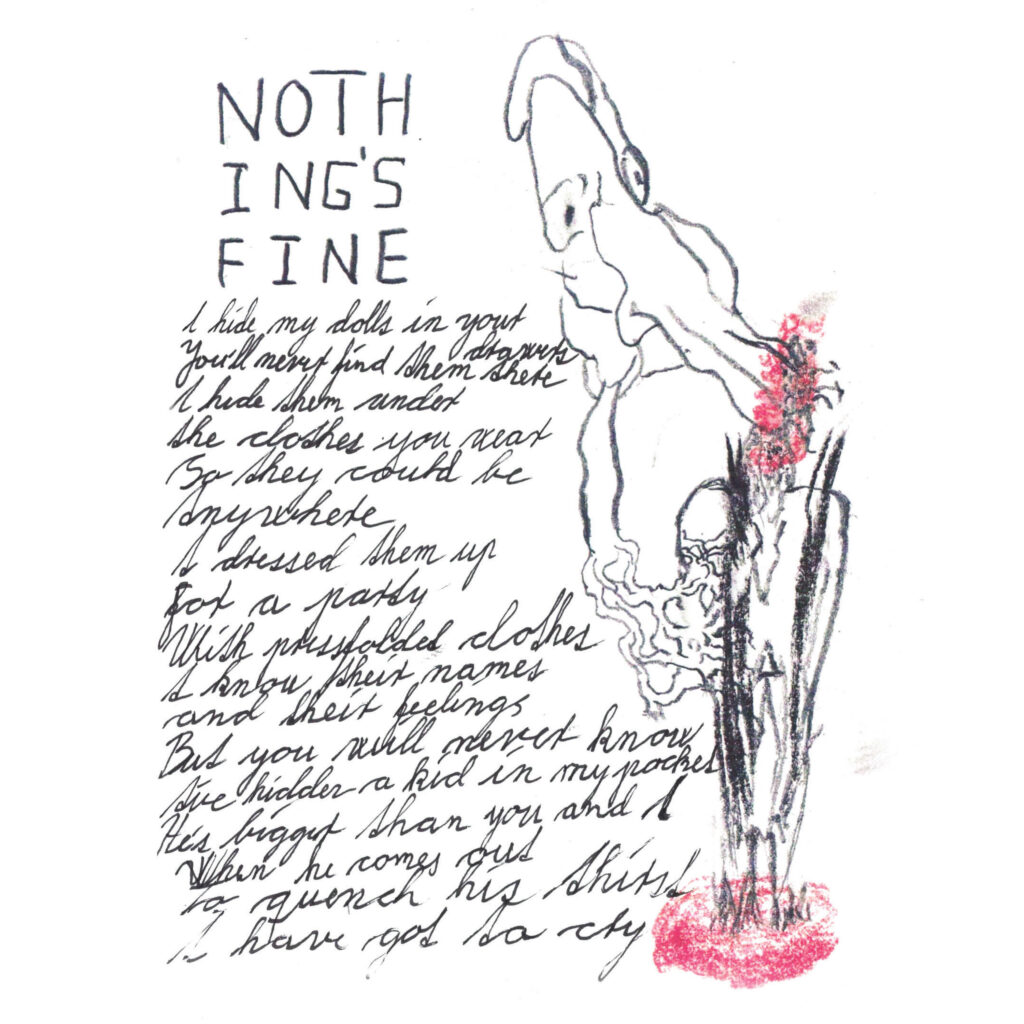 NOTH
ING'S
FINE
I hide my dolls in your
drawers
You'll never find them there
I hide them under
the clothes you wear
So they could be
anywhere
I dressed them up
for a party
With pressfolded clothes
I know their names
and their feelings
But you will never know
I've hidden a kid in my pocket
He's bigger than you and I
When he comes out
to quench his thirst
I have got to cry